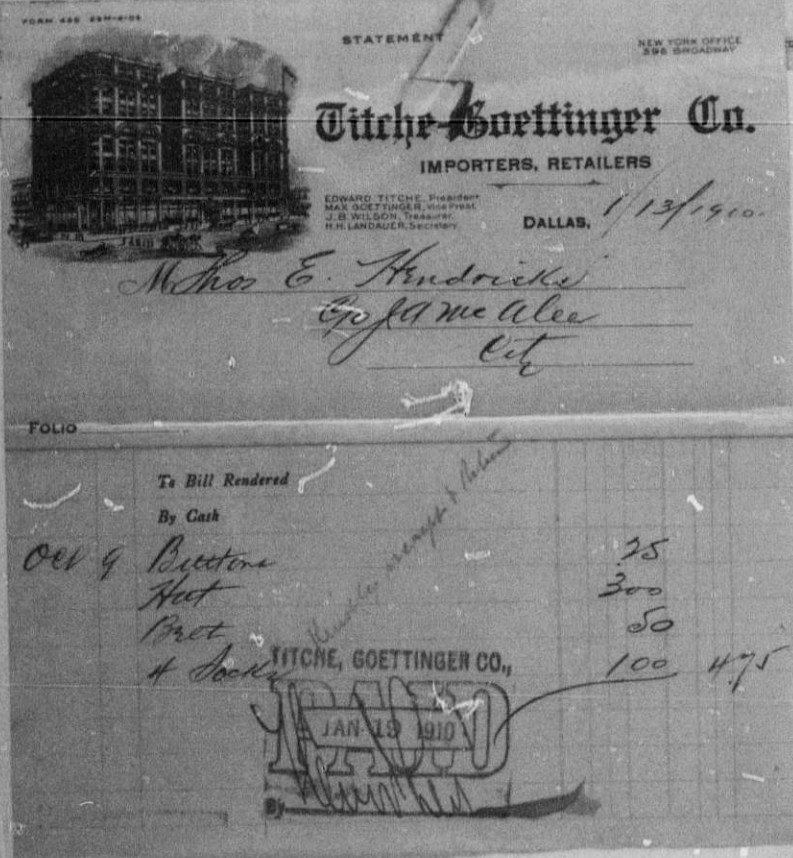 STATEMENT
NEW YORK OFFICE
396 BROADWAY
Titche-Goettinger Co.
IMPORTERS, RETAILERS
EDWARD TITCHE, President
MAX GOETTINGER, Vice Prest.
J.B. WILSON, Treasurer.
H.H. LANDAUER, Secretary.
DALLAS, 1/13/1910.
M Thos E. Hendricks
c/o J A McAlee
City
FOLIO
To Bill Rendered
By Cash
Oct 9 Buttons 25
Hat 300
Belt 50
4 Socks 100 475
Kindly receipt & return
TITCHE, GOETTINGER CO.,
PAID
JAN 19 1910
By